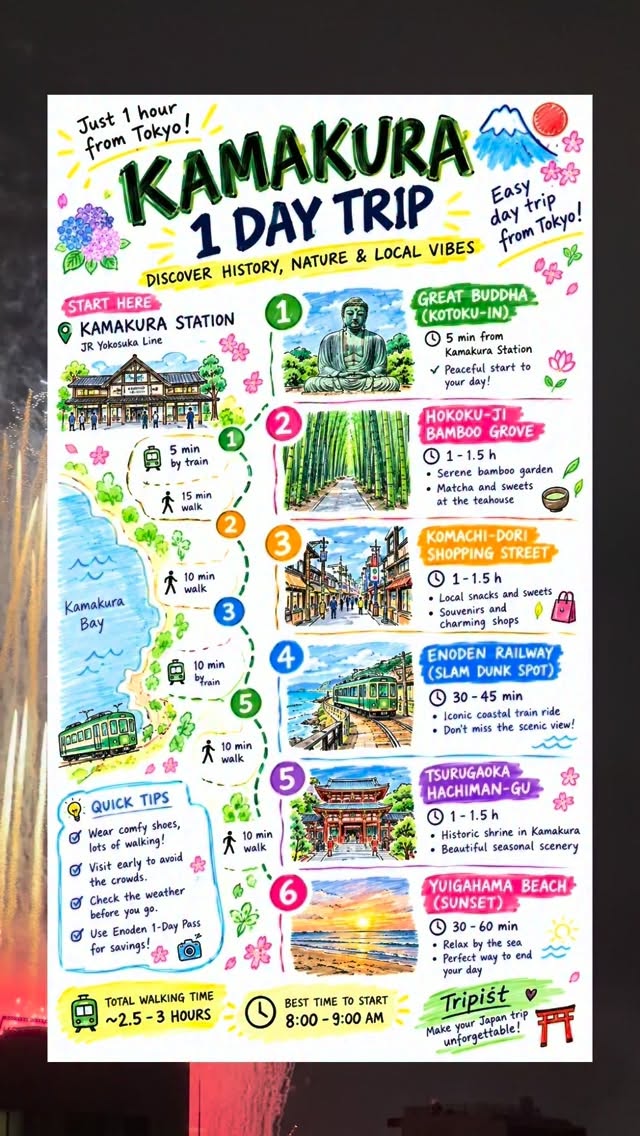 Just 1 hour
from Tokyo!
KAMAKURA
1 DAY TRIP
DISCOVER HISTORY, NATURE & LOCAL VIBES
Easy
day trip
from Tokyo!
START HERE
KAMAKURA STATION
JR Yokosuka Line
1
5 min
by train
15 min
walk
2
10 min
walk
3
10 min
by train
5
10 min
walk
10 min
walk
Kamakura
Bay
1
GREAT BUDDHA
(KOTOKU-IN)
5 min from
Kamakura Station
Peaceful start to
your day!
2
HOKOKU-JI
BAMBOO GROVE
1 - 1.5 h
• Serene bamboo garden
• Matcha and sweets
at the teahouse
3
KOMACHI-DORI
SHOPPING STREET
1 - 1.5 h
• Local snacks and sweets
• Souvenirs and
charming shops
4
ENODEN RAILWAY
(SLAM DUNK SPOT)
30 - 45 min
• Iconic coastal train ride
• Don't miss the scenic view!
5
TSURUGAOKA
HACHIMAN-GU
1 - 1.5 h
• Historic shrine in Kamakura
• Beautiful seasonal scenery
6
YUIGAHAMA BEACH
(SUNSET)
30 - 60 min
• Relax by the sea
• Perfect way to end
your day
QUICK TIPS
Wear comfy shoes,
lots of walking!
Visit early to avoid
the crowds.
Check the weather
before you go.
Use Enoden 1-Day Pass
for savings!
TOTAL WALKING TIME
~2.5 - 3 HOURS
BEST TIME TO START
8:00 - 9:00 AM
Tripist
Make your Japan trip
unforgettable!